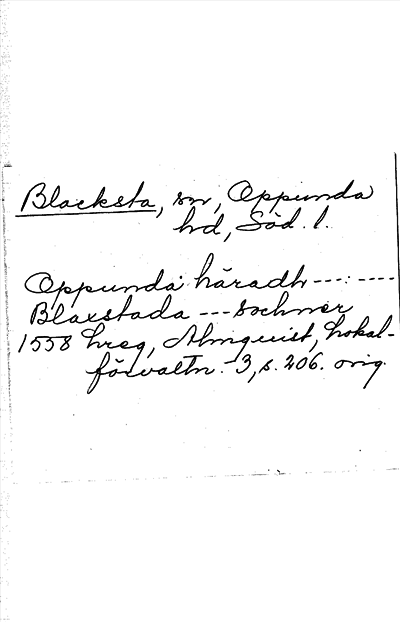 Blacksta, sn, Oppunda
hd, Söd. l.
Oppunda häradh ---: ----
Blaxstada --- sochner
1558 hreg, Almquist, Lokal-
förvaltn. 3, s. 206. orig.